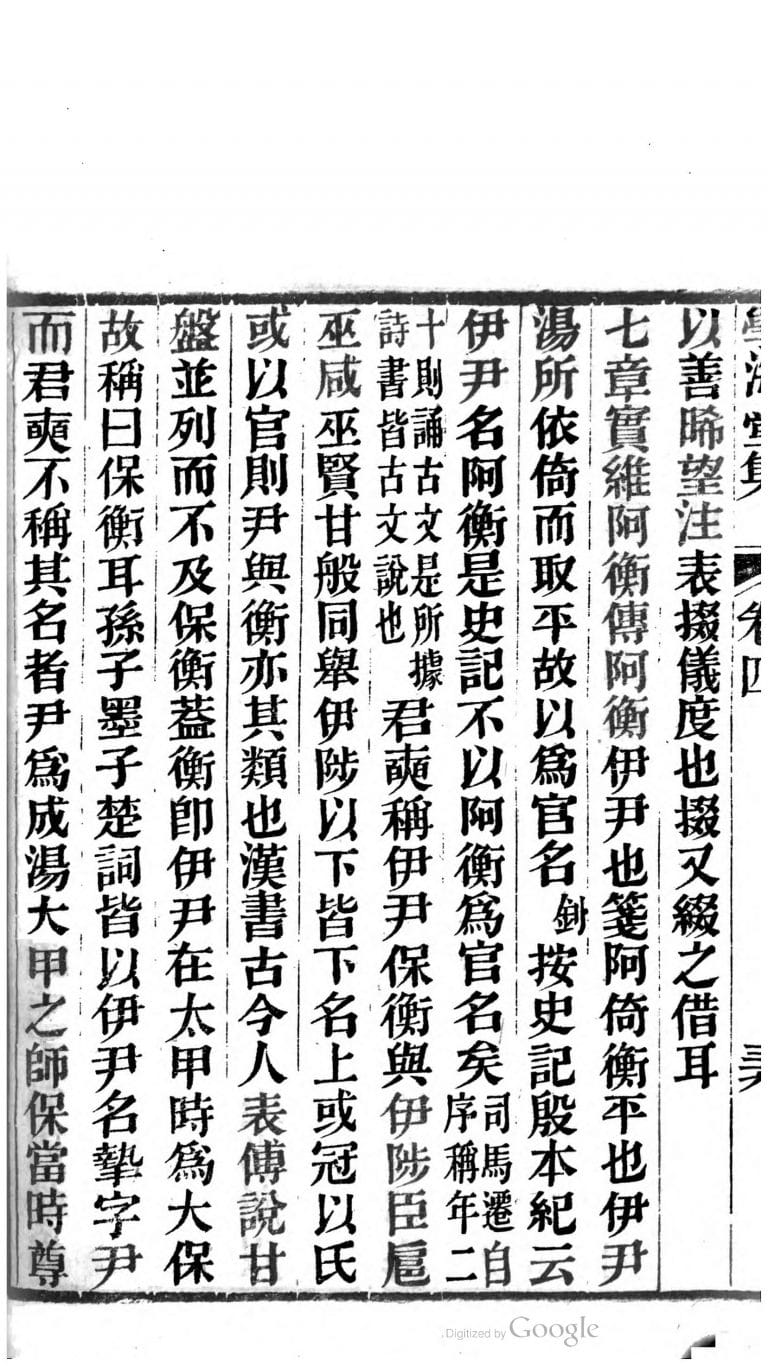 學海堂集 卷四 三六
以善晞望注表掇儀度也掇又綴之借耳
七章實維阿衡傳阿衡伊尹也箋阿倚衡平也伊尹
湯所依倚而取平故以爲官名釗按史記殷本紀云
伊尹名阿衡是史記不以阿衡爲官名矣司馬遷自序稱年二
十則誦古文是所據詩書皆古文說也君奭稱伊尹保衡與伊陟臣扈
巫咸巫賢甘般同舉伊陟以下皆下名上或冠以氏
或以官則尹與衡亦其類也漢書古今人表傅說甘
盤並列而不及保衡蓋衡卽伊尹在太甲時爲大保
故稱曰保衡耳孫子墨子楚詞皆以伊尹名摯字尹
而君奭不稱其名者尹爲成湯大甲之師保當時尊
Digitized by Google